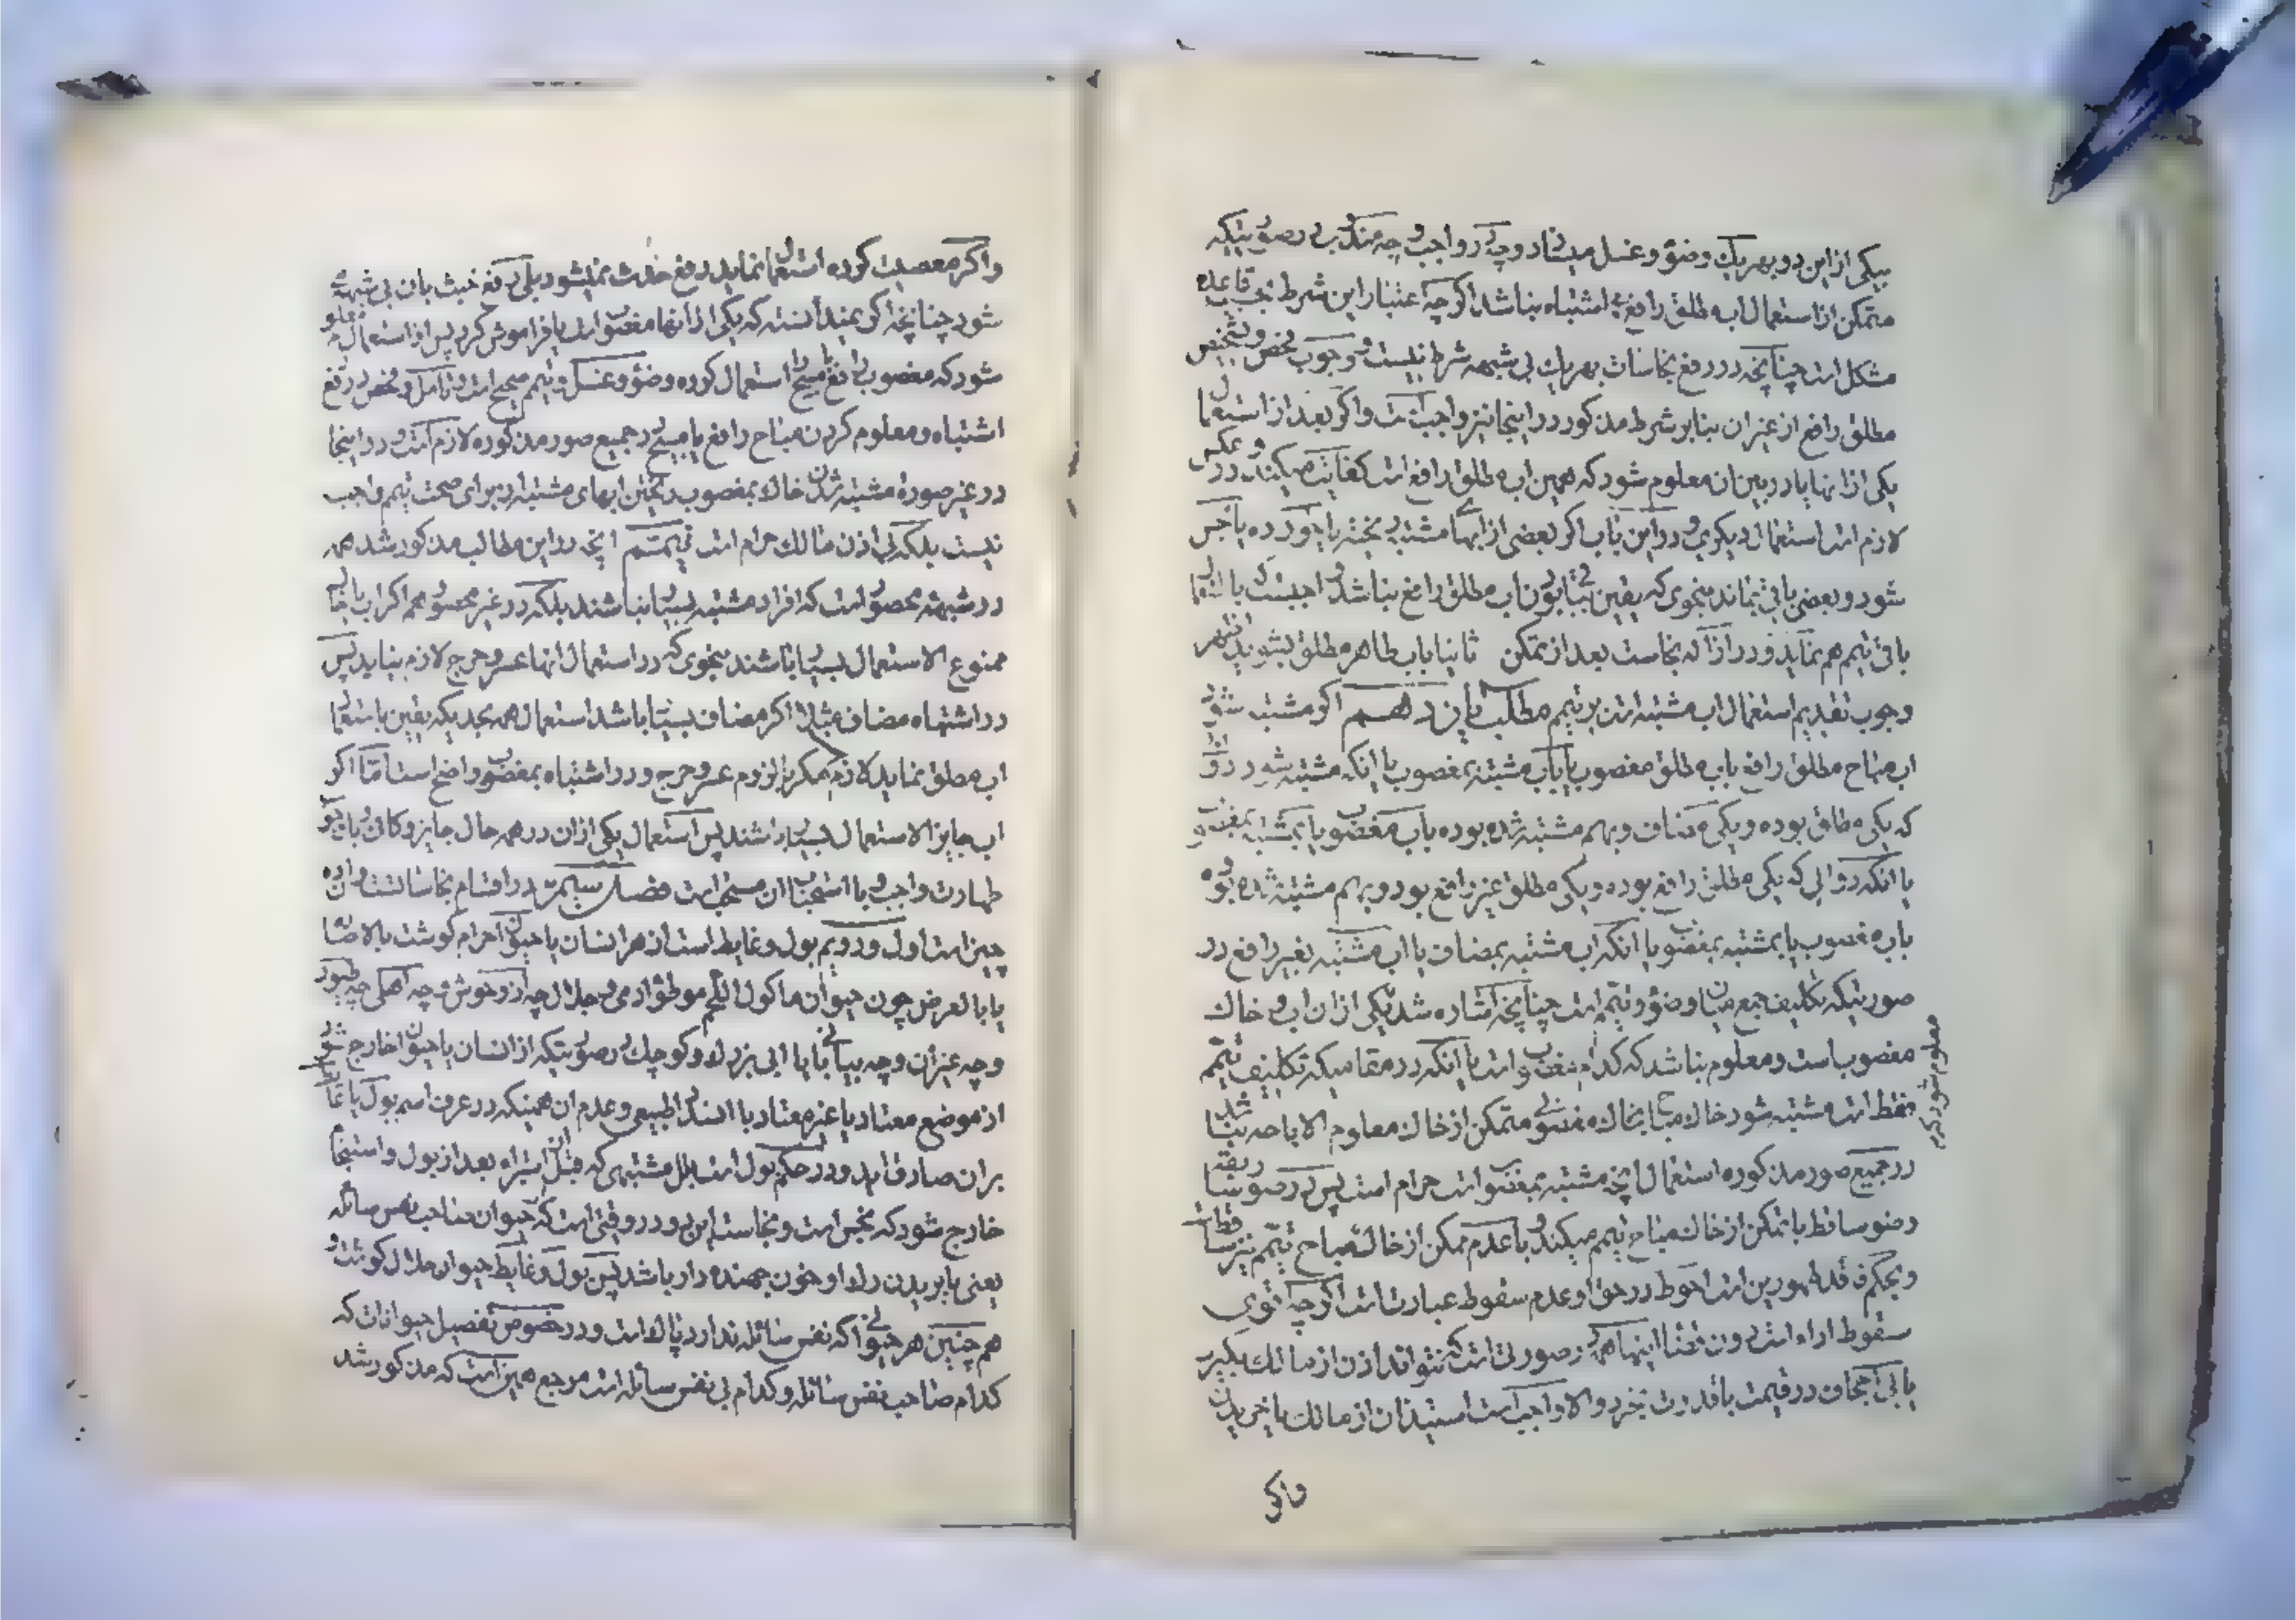 بیکی از این دو بهر یک وضو و غسل میشاد و چه در واجب و چه مندوب در صورتیکه
متمکن از استعمال اب مطلق رافع بی اشتباه نباشد اگرچه اعتبار این شرط بحسب قاعده
مشکل است چنانچه در رفع نجاسات بهر یک بی شبهه شرط نیست و وجوب فحص و تشخیص
مطلق رافع از غیر ان بنابر شرط مذکور در اینجا نیز واجب است و اگر بعد از استعمال
یکی از انها یا در بین ان معلوم شود که همین اب مطلق رافع است کفایت میکند و در عکس
لازم است استعمال دیگری و در این باب اگر بعضی از ابهای مشتبه ریخته یا خورده یا نجس
شود و بعضی باقی بماند بنحوی که یقین ببقای بودن اب مطلق رافع نباشد واجبست که با استعمال
باقی تیمم هم نماید و در ازاله نجاست بعد از تمکن ثانیا باب طاهر مطلق بشوید
وجوب تقدیم استعمال اب مشتبه است بر تیمم مطلب یازدهم اگر مشتبه شود
اب مباح مطلق رافع باب مطلق مغصوب یا باب مشتبه بمغصوب یا انکه مشتبه شود دو اب
که یکی مطلق بوده و یکی مضاف و بهم مشتبه شده بوده باب مغصوب یا بمشتبه بمغصوب
یا انکه دو ابی که یکی مطلق رافع بوده و یکی مطلق غیر رافع بود و بهم مشتبه شده بوده
باب مغصوب یا بمشتبه بمغصوب یا انکه اب مشتبه بمضاف یا اب مشتبه بغیر رافع در
صورتیکه تکلیف جمع میان وضو و تیمم است چنانچه اشاره شد یکی از ان اب و خاک
مغصوب است و معلوم نباشد که کدام مغصوب است یا انکه در مقامیکه تکلیف تیمم
فقط است مشتبه شود خاک مباح بخاک مغصوبی و متمکن از خاک معلوم الاباحه نباشد
در جمیع صور مذکوره استعمال انچه مشتبه بمغصوب است حرام است پس در صور سابقه
وضو ساقط با تمکن از خاک مباح تیمم میکند و با عدم تمکن از خاک مباح تیمم نیز ساقط است
و بحکم فاقد طهورین است احوط در حق او عدم سقوط عبادتست اگرچه اقوی
سقوط اداء است بدون قضا اینها همه در صورتی است که نتواند اذن از مالک بگیرد
یا بی اجحاف در قیمت با قدرت بخرد و الا واجب است استیذان از مالک یا خریدن
واگر
معلوم شود که
واگر معصیت کرده استعمال نماید رفع حدث نمیشود بلی رفع خبث بان بی شبهه
شود چنانچه اگر نمیدانسته که یکی از انها مغصوب است یا فراموش کرد پس از استعمال معلوم
شود که مغصوب رافع یا مبیح را استعمال کرده وضو و غسل و تیمم صحیح است و تأمل و فحص در رفع
اشتباه و معلوم کردن مباح رافع یا مبیح در جمیع صور مذکوره لازم است و در اینجا
در غیر صورة مشتبه شدن خاک بمغصوب ریختن ابهای مشتبه در برای صحت تیمم واجب
نیست بلکه بی اذن مالک حرام است تتمیم انچه در این مطالب مذکور شد همه
در شبهه محصور است که افراد مشتبه بسیار نباشند بلکه در غیر محصور هم اگر اب یا خاک
ممنوع الاستعمال بسیار باشند بنحوی که در استعمال انها عسر و حرج لازم نیاید پس
در اشتباه مضاف مثلا اگر مضاف بسیار باشد استعمال همه بحدیکه یقین باستعمال
اب مطلق نماید لازم مگر بالزوم عسر و حرج و در اشتباه بمغصوب واضح است امّا اگر
اب جایز الاستعمال بسیار باشند پس استعمال یکی از ان در همه حال جایز و کافی
طهارت واجب و با اجتناب ان مستحب است فصل سیم در اقسام نجاسات است و ان ده
چیز است اول و دویم بول و غایط است از هر انسان یا حیوان حرام گوشت بالاصاله
یا بالعرض چون حیوان ماکول اللحم موطوء ادمی و جلال چه از وحوش و چه اهلی چه طیور
و چه غیر ان و چه بیابانی یا ابی بزرک و کوچک در صورتیکه از انسان یا حیوان خارج شود
از موضع معتاد یا غیر معتاد با انسداد طبیعی و عدم ان همینکه در عرف اسم بول یا غایط
بران صادق اید و در حکم بول است بلل مشتبهی که قبل از استبراء بعد از بول و استنجا
خارج شود که نجس است و نجاست این دو در وقتی است که حیوان صاحب نفس سائله
یعنی با بریدن رک او خون جهنده دار باشد پس بول و غایط حیوان حلال گوشت و
هم چنین هر حیوانی که نفس سائله ندارد پاک است و در خصوص تفصیل حیوانات که
کدام صاحب نفس سائله و کدام بی نفس سائله است مرجع همین است که مذکور شد